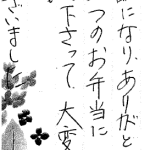 になり、ありがと
つのお弁当に
下さって、大変
いました